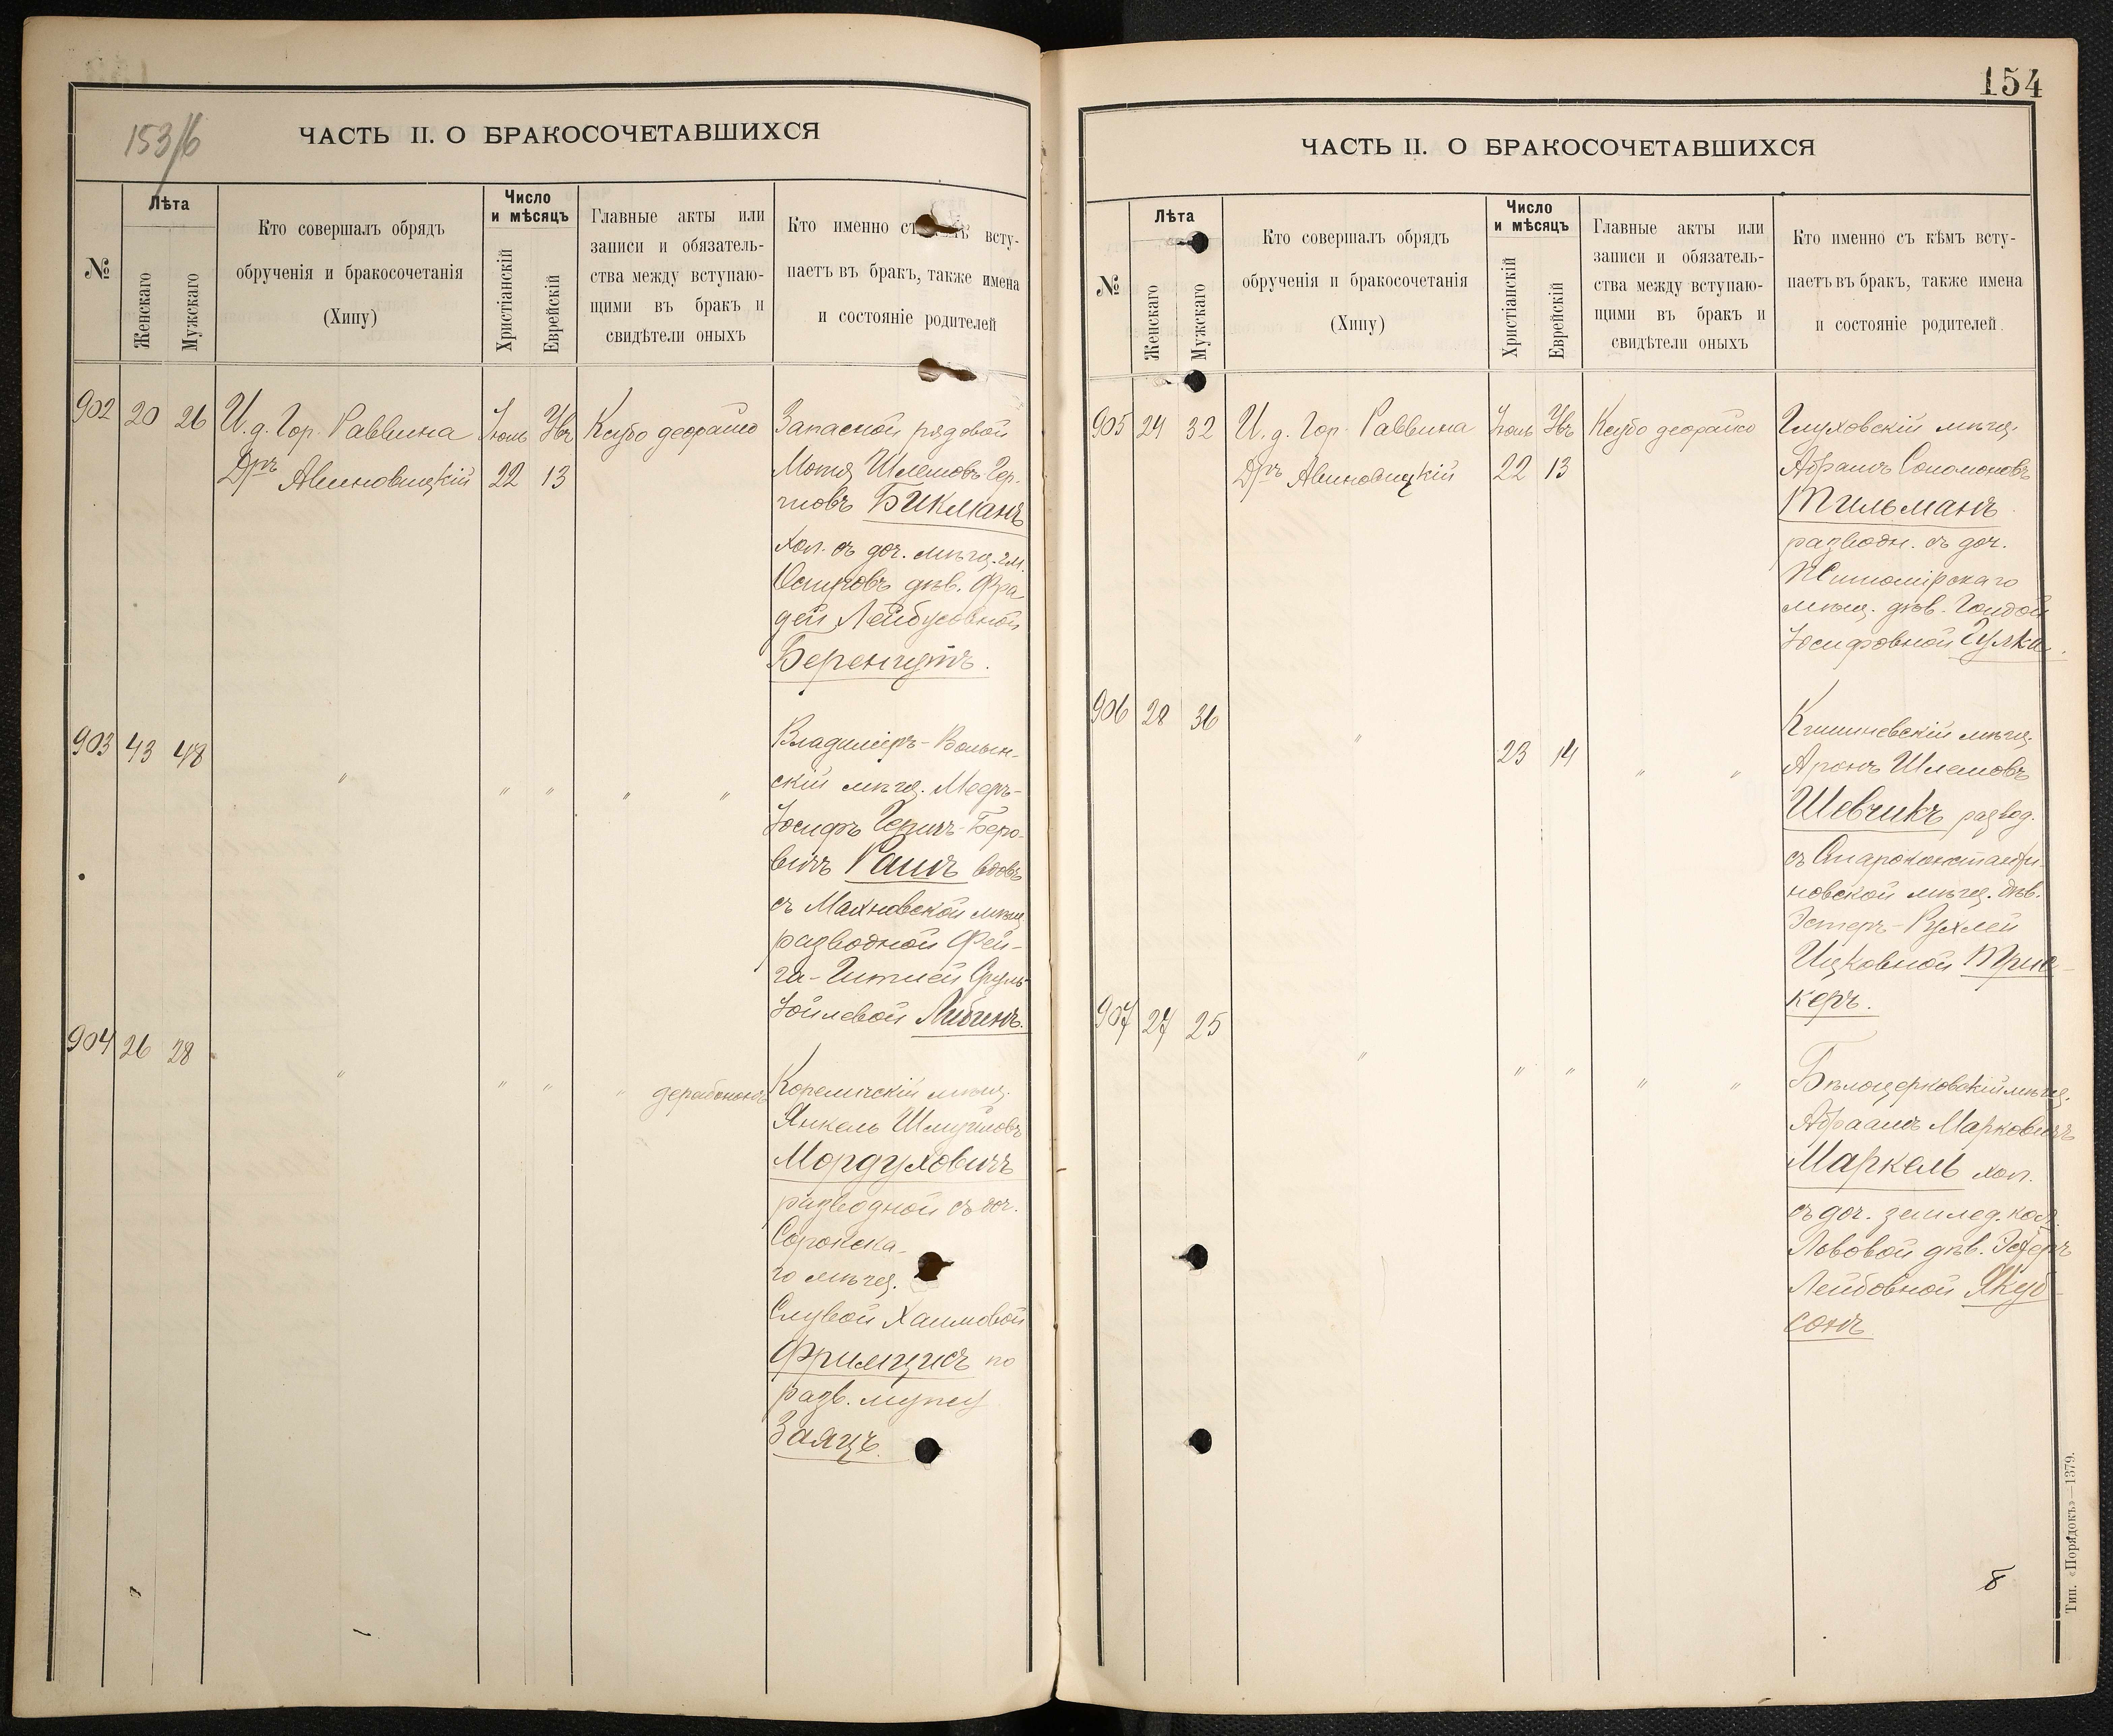 153/б
ЧАСТЬ II. О БРАКОСОЧЕТАВШИХСЯ
№
Лѣта
Женскаго
Мужскаго
Кто совершалъ обрядъ
обрученія и бракосочетанія
(Хипу)
Число
и мѣсяцъ
Христіанскій
Еврейскій
Главные акты или
записи и обязатель-
ства между вступаю-
щими въ бракъ и
свидѣтели оныхъ
Кто именно всту-
паетъ въ бракъ, также имена
и состояніе родителей
902 20 26
И. д. Гор. Раввина
Д-ръ Авиновицкій
Іюль
22
13
Запасной рядовой
Шлемовъ Гер-
шовъ Бикманъ
хол. съ доч. мѣщ. гм.
Осиповъ дѣв. Фра
дей Лейбусовной
Беренгутъ.
903 43 48
" " " " "
Владиміръ-Волын-
скій мѣщ. Мееръ-
Іосифъ Беро-
вичъ Рашъ вдовъ
съ Махновской мѣщ
разводной Фей-
га-Гитлей Сруль-
Іойлевой
904 26 28
" " " "
дерабононъ
Кореличскій мѣщ.
Янкель Шмуйловъ
Мордуховичъ
разводной съ доч.
Сорокска-
го мѣщ.
Слувой Хаимовой
Фримцисъ по
разв. мужу
Заяцъ.
154
ЧАСТЬ II. О БРАКОСОЧЕТАВШИХСЯ
№
Лѣта
Женскаго
Мужскаго
Кто совершалъ обрядъ
обрученія и бракосочетанія
(Хипу)
Число
и мѣсяцъ
Христіанскій
Еврейскій
Главные акты или
записи и обязатель-
ства между вступаю-
щими въ бракъ и
свидѣтели оныхъ
Кто именно съ кѣмъ всту-
паетъ въ бракъ, также имена
и состояніе родителей
905 24 32
И. д. Гор. Раввина
Д-ръ Авиновицкій
Іюль
22
13
Глуховскій мѣщ.
Абрамъ Соломоновъ
Тильманъ
разводн. съ доч.
Житомірскаго
мѣщ. дѣв. Голдой
Іосифовной Гулка.
906 28 36
"
23
14
" "
Кишиневскій мѣщ.
Аронъ Шлемовъ
Шевчикъ развод.
съ Староконстанти-
новской мѣщ. дѣв.
Эстеръ-Рухлей
Ицковной Трис-
керъ.
907 27 25
" " " " "
Бѣлоцерковскій мѣщ.
Абраамъ Марковичъ
Маркель хол.
съ доч. землед. кол.
Львовой дѣв. Эстеръ
Лейбовной Якуб-
сонъ
8
Тип. «Порядокъ»—1379.